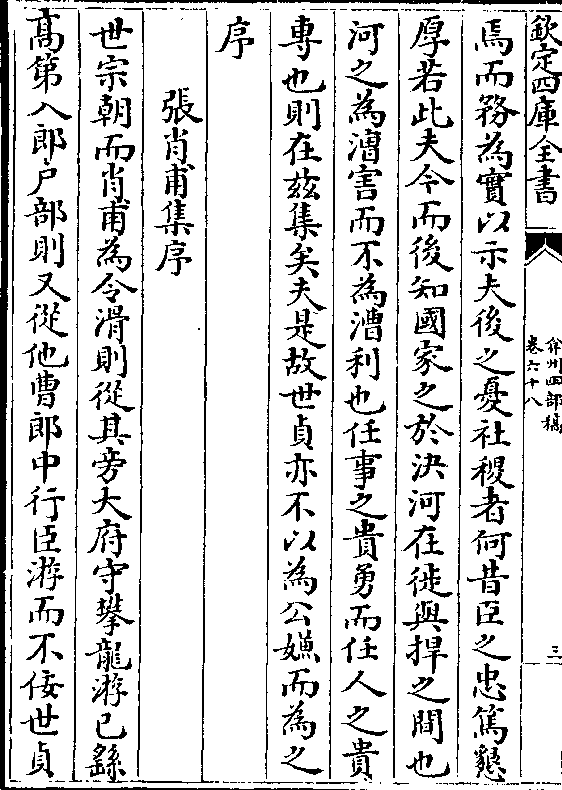 欽定四庫全書
弇州四部稿
卷六十八
三
焉而務為實以示夫後之憂社稷者何昔臣之忠篤懇
厚若此夫今而後知國家之於決河在徙與捍之間也
河之為漕害而不為漕利也任事之貴勇而任人之貴
專也則在兹集矣夫是故世貞亦不以為公嫌而為之
序
張肖甫集序
世宗朝而肖甫為令滑則從其旁大府守攀龍游已繇
高第入郎户部則又從他曹郎中行臣游而不佞世貞